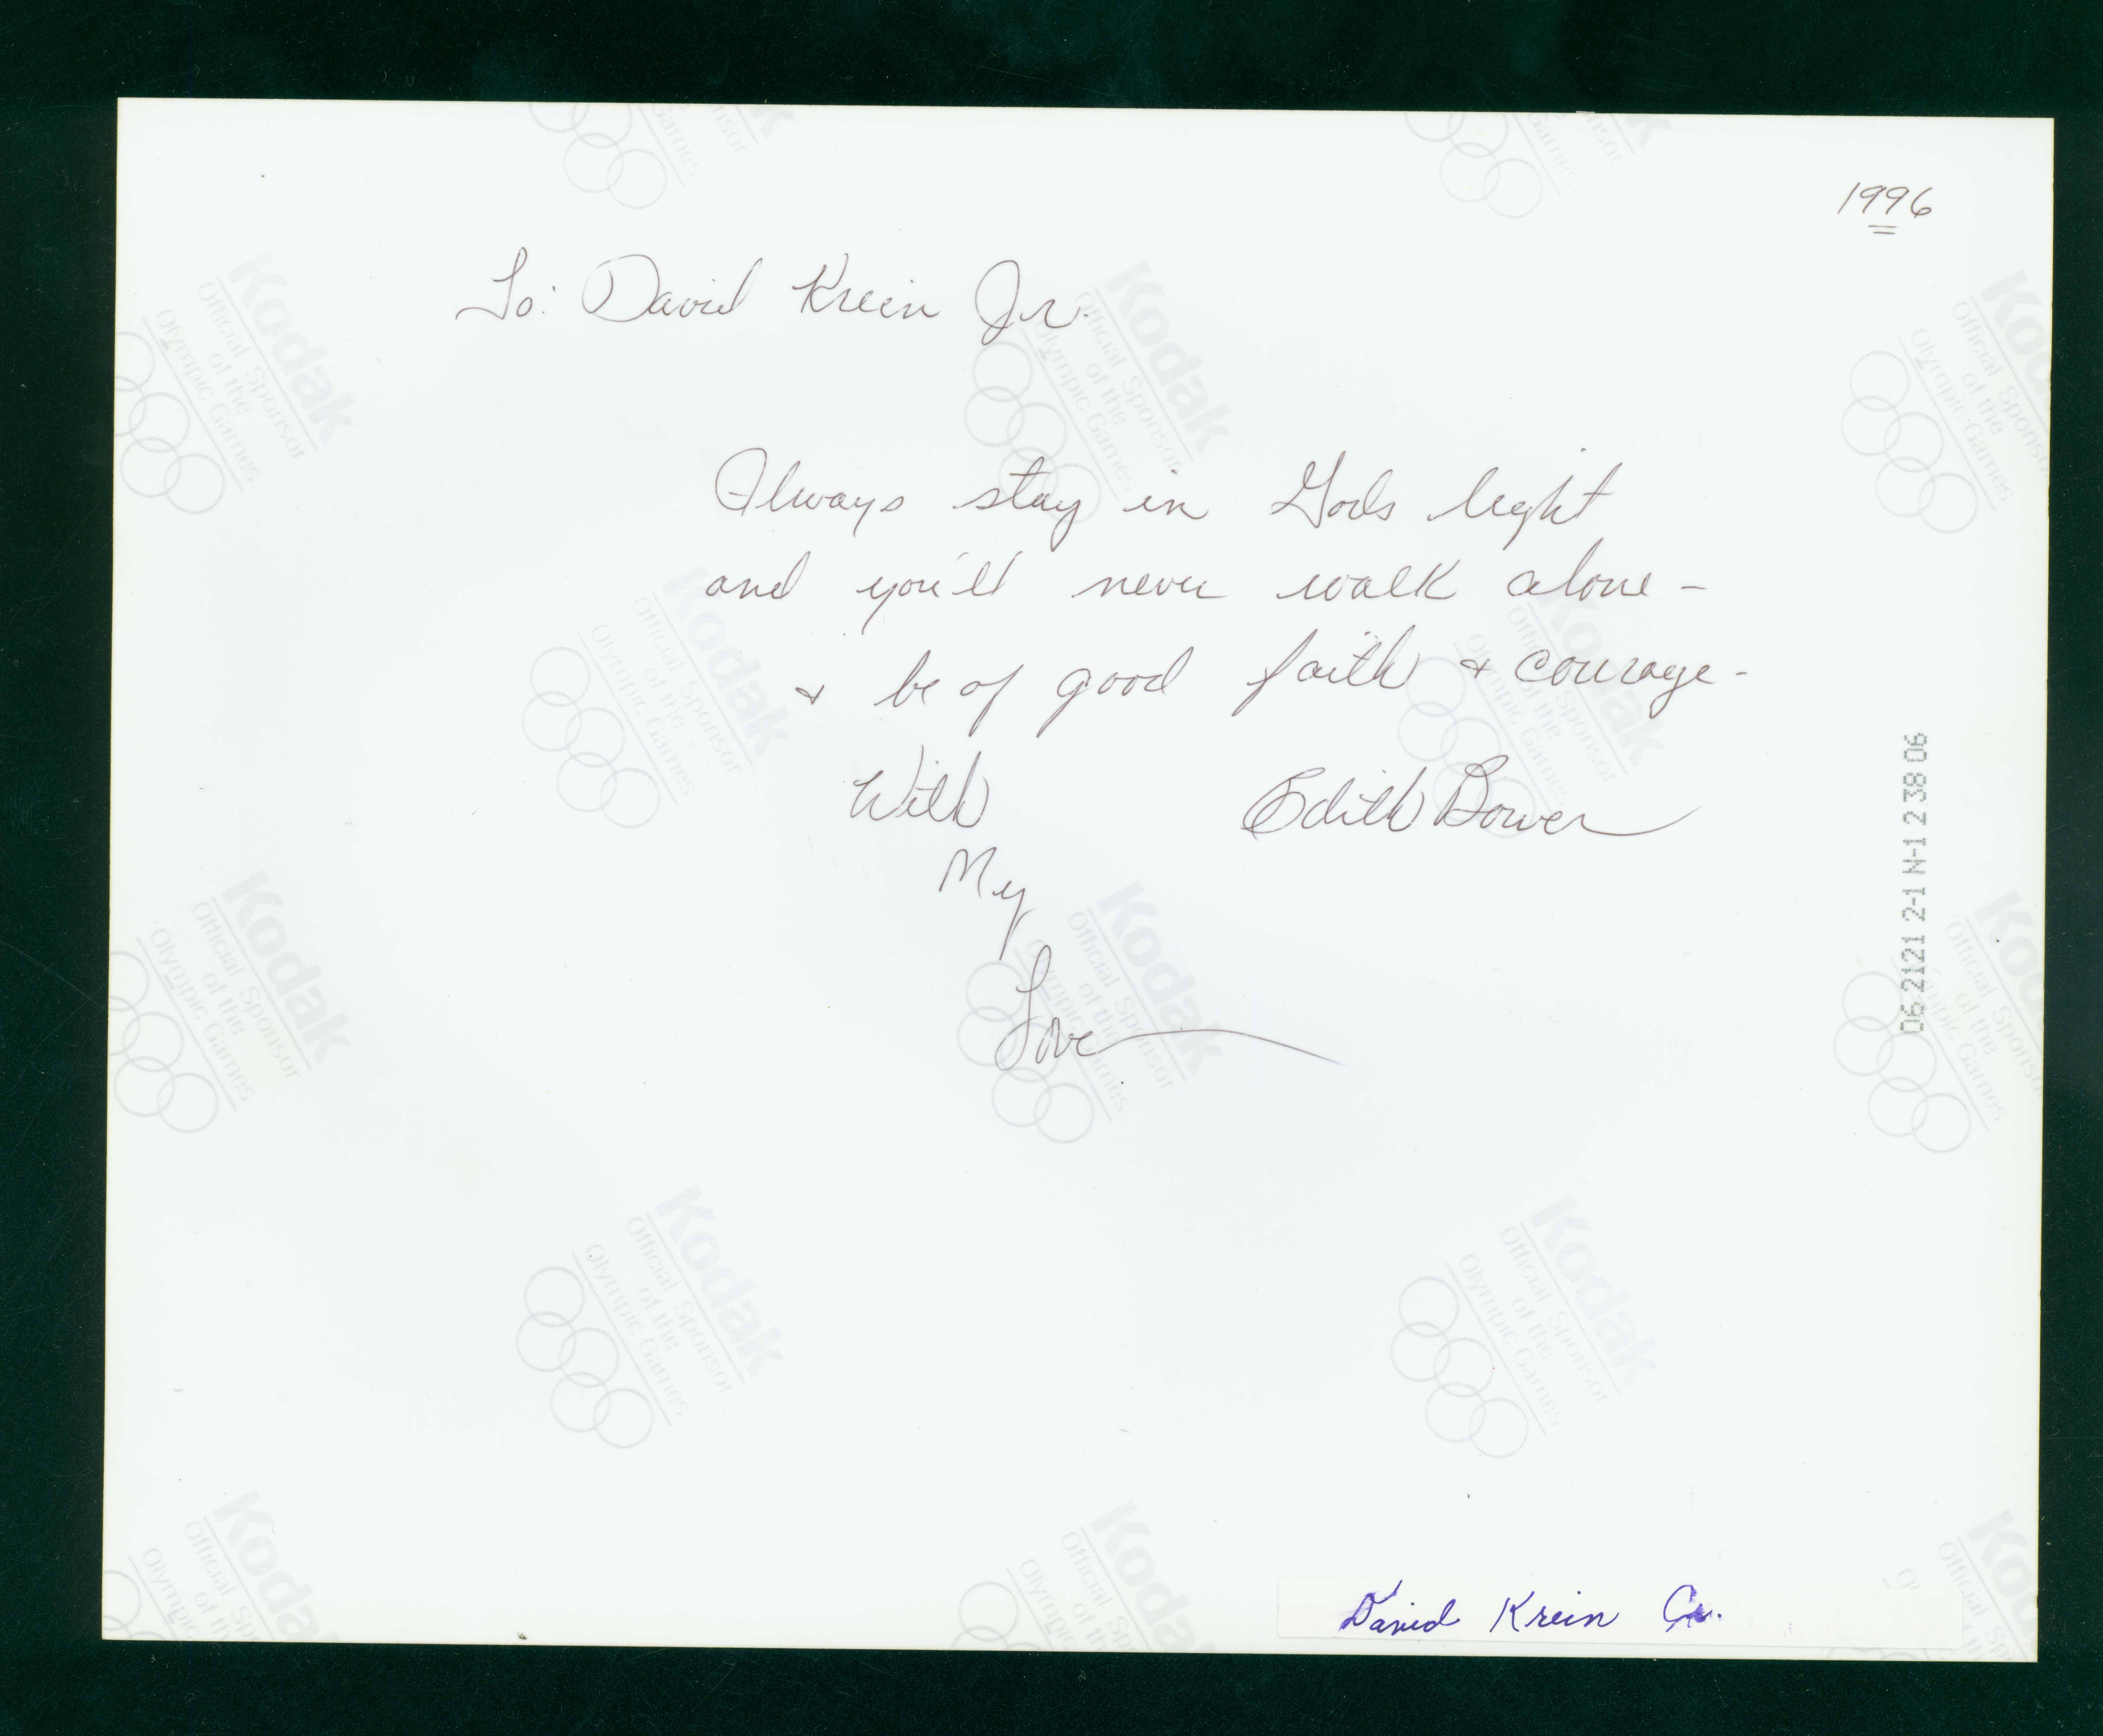 1996
To: David Krein Jr.
Always stay in Gods light
and you'll never walk alone -
& be of good faith & courage -
With
Edith Bower
My
Love
06 2121 2-1 N-1 2 38 06
David Krein Jr.
Kodak
Official Sponsor
of the
Olympic Games